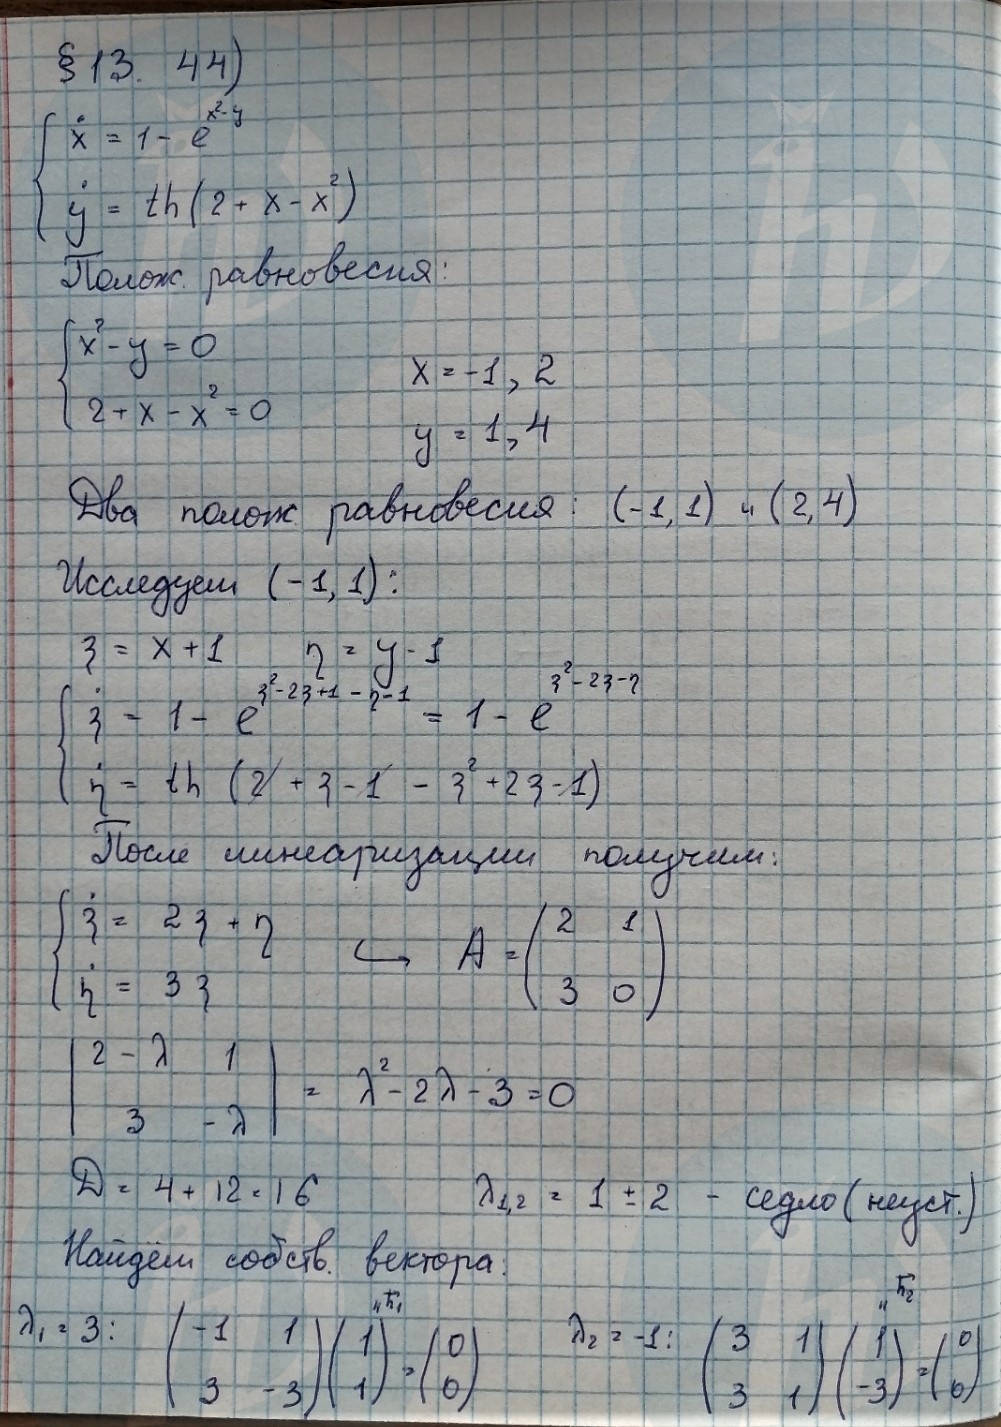 §13. 44)
ẋ = 1 - e^{x²-y}
ẏ = th(2 + x - x²)
Полож. равновесия:
x² - y = 0
2 + x - x² = 0
x = -1, 2
y = 1, 4
Два полож. равновесия: (-1, 1) и (2, 4)
Исследуем (-1, 1):
ξ = x + 1 η = y - 1
ξ̇ = 1 - e^{ξ²-2ξ+1-η-1} = 1 - e^{ξ²-2ξ-η}
η̇ = th (2 + ξ - 1 - ξ² + 2ξ - 1)
После линеаризации получим:
ξ̇ = 2ξ + η
η̇ = 3ξ
↪ A = (2 1
3 0)
|2 - λ 1
3 -λ| = λ² - 2λ - 3 = 0
D = 4 + 12 = 16 λ₁,₂ = 1 ± 2 - седло (неуст.)
Найдём собств. вектора:
λ₁ = 3: (-1 1
3 -3) (1
1) = (0
0)
"h̄₁
λ₂ = -1: (3 1
3 1) (1
-3) = (0
0)
"h̄₂